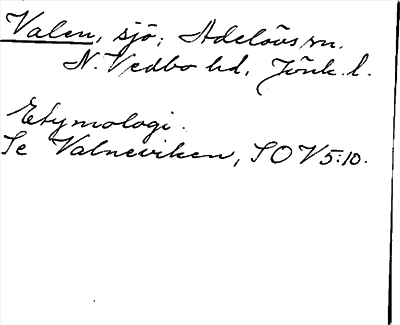 Valen, sjö; Adelövs sn.
N. Vedbo hd, Jönk. l.
Etymologi.
Se Valneviken, SOV 5:10.